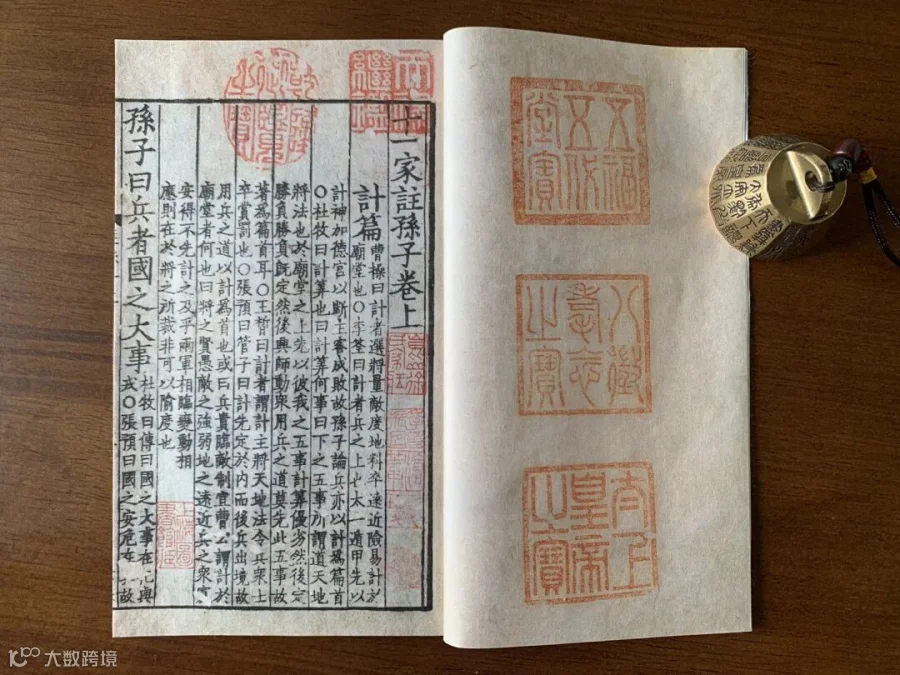 五福五代堂寶
八徵耄念之寶
太上皇帝之寶
天祿繼鑑
乾隆御覽之寶
十一家註孫子卷上
計篇
曹操曰計者選將量敵度地料卒遠近險易計於
廟堂也○李筌曰計者兵之上也太一遁甲先以
計神加德宮以斷主客成敗故孫子論兵亦以計爲篇首
○杜牧曰計算也曰計算何事曰下之五事所謂道天地
將法也於廟堂之上先以彼我之五事計算優劣然後定
勝負勝負既定然後興師動衆用兵之道莫先此五事故
著爲篇首耳○王晳曰計者謂計主將天地法令兵衆士
卒賞罰也○張預曰管子曰計先定於內而後兵出境故
用兵之道以計爲首也或曰兵貴臨敵制宜曹公謂計於
廟堂者何也曰將之賢愚敵之強弱地之遠近兵之衆
安得不先計之及乎兩軍相臨變動相
應則在於將之所裁非可以隃度也
孫子曰兵者國之大事
杜牧曰傳曰國之大事在祀與
戎○張預曰國之安危在故
大数跨境